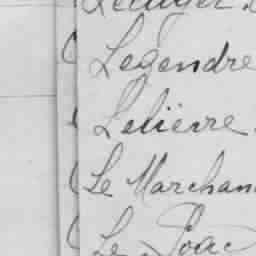 Legendre
Lelièvre
Le Marchan
Le